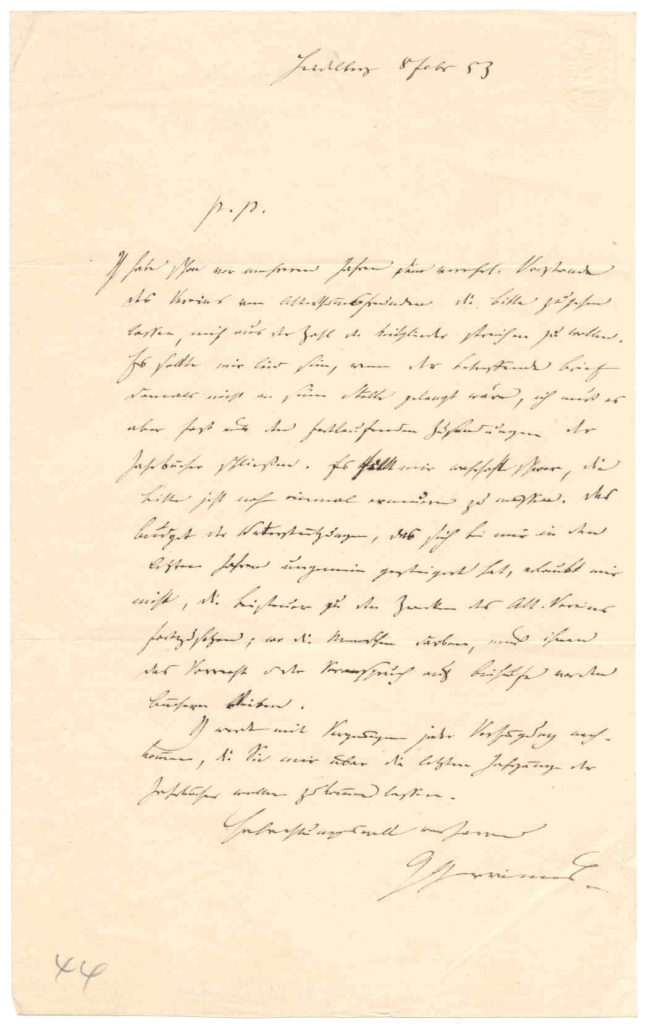 Heidelberg 8 Febr 53
p. p.
Ich habe schon vor mehreren Jahren dem verehrl. Vorstande
des Vereins von Alterthumsfreunden die Bitte zugehen
lassen, mich aus der Zahl der Mitglieder streichen zu wollen.
Es sollte mir leid sein, wenn der betreffende Brief
damals nicht an seine Stelle gelangt wäre, ich muß es
aber fast aus den fortlaufenden Zusendungen der
Jahrbücher schließen. Es fällt mir wahrhaft schwer, die
Bitte jetzt noch einmal erneuern zu müssen. Das
Budget der Unterstützungen, das sich bei mir in den
letzten Jahren ungemein gesteigert hat, erlaubt mir
nicht, die Beisteuer zu den Zwecken des Alt. Vereins
fortzusetzen; wo die Menschen darben, muß ihnen
das Vorrecht oder Voranspruch auf Beihülfe vor den
Büchern bleiben.
Ich werde mit Vergnügen jeder Verfügung nach-
kommen, die Sie mir über die letzten Jahrgänge der
Jahrbücher wollen zukommen lassen.
Hochachtungsvoll
Gervinus.
44